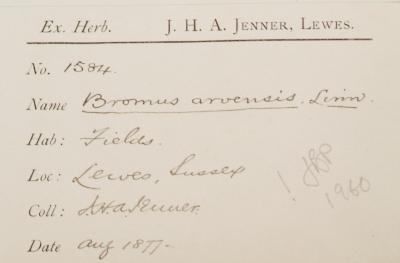 Ex. Herb. J. H. A. Jenner, Lewes.
No. 1584.
Name Bromus arvensis. Linn.
Hab: Fields.
Loc: Lewes, Sussex
Coll: J.H.A. Jenner.
Date Aug 1877-
! 
1960